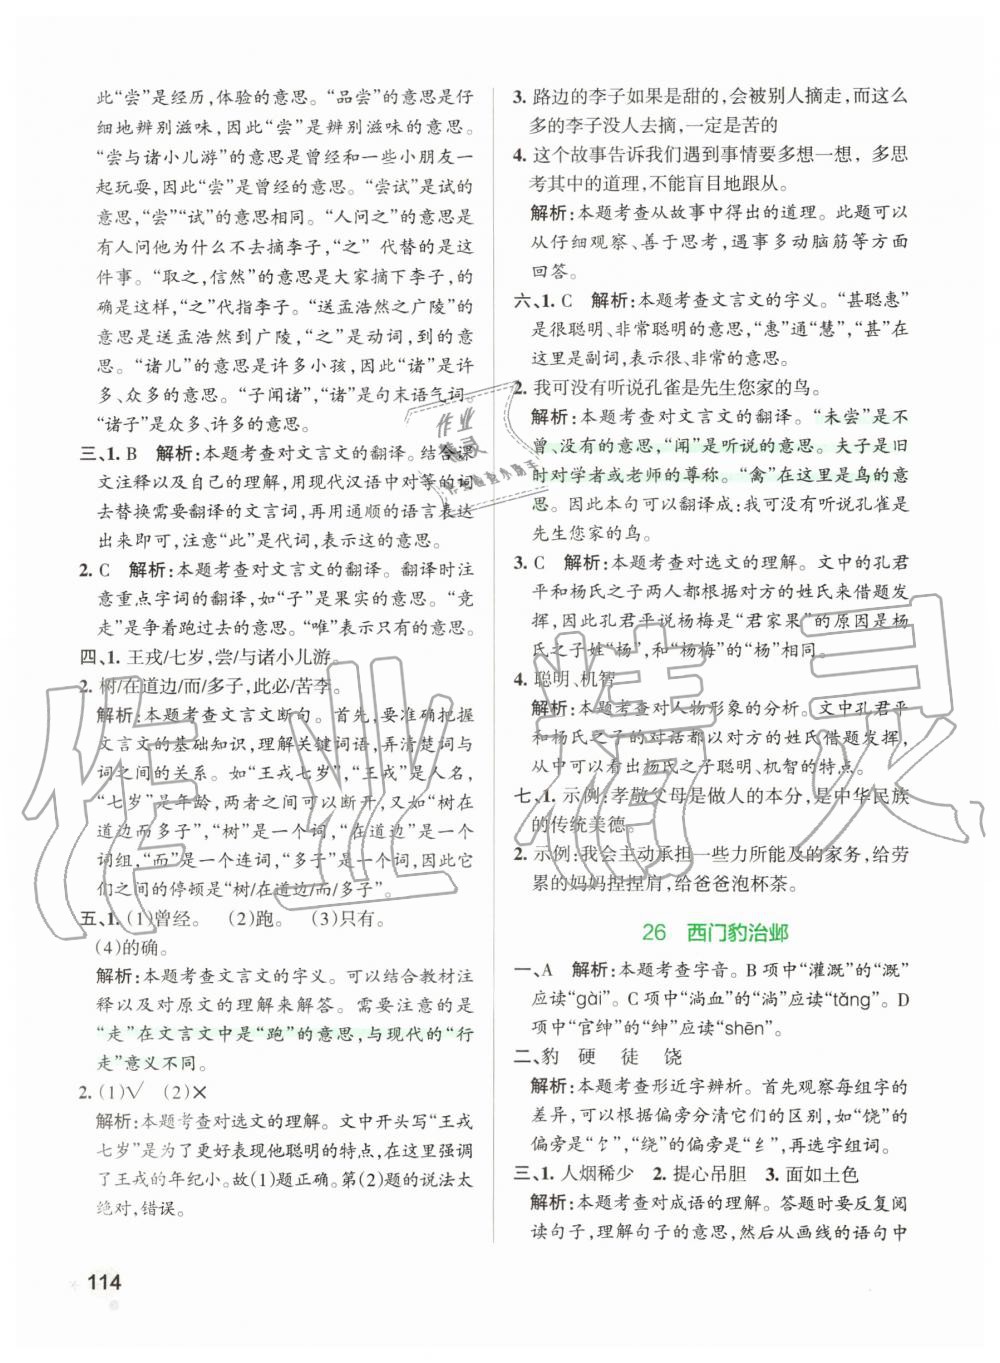 此“尝”是经历，体验的意思。“品尝”的意思是仔
细地辨别滋味，因此“尝”是辨别滋味的意思。
“尝与诸小儿游”的意思是曾经和一些小朋友一
起玩耍，因此“尝”是曾经的意思。“尝试”是试的
意思，“尝”“试”的意思相同。“人问之”的意思是
有人问他为什么不去摘李子，“之”代替的是这
件事。“取之，信然”的意思是大家摘下李子，的
确是这样，“之”代指李子。“送孟浩然之广陵”的
意思是送孟浩然到广陵，“之”是动词，到的意
思。“诸儿”的意思是许多小孩，因此“诸”是许
多、众多的意思。“子闻诸”，“诸”是句末语气词。
“诸子”是众多、许多的意思。
三、1. B 解析：本题考查文言文的翻译。结合课
文注释以及自己的理解，用现代汉语中对等的词
去替换需要翻译的文言词，再用通顺的语言表达
出来即可，注意“此”是代词，表示这的意思。
2. C 解析：本题考查对文言文的翻译。翻译时注
意重点字词的翻译，如“子”是果实的意思。“竞
走”是争着跑过去的意思。“唯”表示只有的意思。
四、1. 王戎/七岁，尝/与诸小儿游。
2. 树/在道边/而/多子，此必/苦李。
解析：本题考查文言文断句。首先，要准确把握
文言文的基础知识，理解关键词语，弄清楚词与
词之间的关系。如“王戎七岁”，“王戎”是人名，
“七岁”是年龄，两者之间可以断开，又如“树在
道边而多子”，“树”是一个词，“在道边”是一个
词组，“而”是一个连词，“多子”是一个词，因此它
们之间的停顿是“树/在道边/而/多子”。
五、1. (1)曾经。 (2)跑。 (3)只有。
(4)的确。
解析：本题考查文言文的字义。可以结合教材注
释以及对原文的理解来解答。需要注意的是
“走”在文言文中是“跑”的意思，与现代的“行
走”意义不同。
2. (1)√ (2)×
解析：本题考查对选文的理解。文中开头写“王戎
七岁”是为了更好表现他聪明的特点，在这里强调
了王戎的年纪小。故(1)题正确。第(2)题的说法太
绝对，错误。
114
3. 路边的李子如果是甜的，会被别人摘走，而这么
多的李子没人去摘，一定是苦的
4. 这个故事告诉我们遇到事情要多想一想，多思
考其中的道理，不能盲目地跟从。
解析：本题考查从故事中得出的道理。此题可以
从仔细观察、善于思考，遇事多动脑筋等方面
回答。
六、1. C 解析：本题考查文言文的字义。“甚聪惠”
是很聪明、非常聪明的意思，“惠”通“慧”，“甚”在
这里是副词，表示很、非常的意思。
2. 我可没有听说孔雀是先生您家的鸟。
解析：本题考查对文言文的翻译。“未尝”是不
曾、没有的意思，“闻”是听说的意思。夫子是旧
时对学者或老师的尊称。“禽”在这里是鸟的意
思。因此本句可以翻译成：我可没有听说孔雀是
先生您家的鸟。
3. C 解析：本题考查对选文的理解。文中的孔君
平和杨氏之子两人都根据对方的姓氏来借题发
挥，因此孔君平说杨梅是“君家果”的原因是杨
氏之子姓“杨”，和“杨梅”的“杨”相同。
4. 聪明、机智
解析：本题考查对人物形象的分析。文中孔君平
和杨氏之子的对话都以对方的姓氏借题发挥，
从中可以看出杨氏之子聪明、机智的特点。
七、1. 示例：孝敬父母是做人的本分，是中华民族
的传统美德。
2. 示例：我会主动承担一些力所能及的家务，给劳
累的妈妈捏捏肩，给爸爸泡杯茶。
26 西门豹治邺
一、A 解析：本题考查字音。B 项中“灌溉”的“溉”
应读“gài”。C 项中“淌血”的“淌”应读“tǎng”。D
项中“官绅”的“绅”应读“shēn”。
二、豹 硬 徒 饶
解析：本题考查形近字辨析。首先观察每组字的
差异，可以根据偏旁分清它们的区别，如“饶”的
偏旁是“饣”，“绕”的偏旁是“纟”，再选字组词。
三、1. 人烟稀少 2. 提心吊胆 3. 面如土色
解析：本题考查对成语的理解。答题时要反复阅
读句子，理解句子的意思，然后从画线的语句中
作业
精灵
作业检查小助手
作业精灵